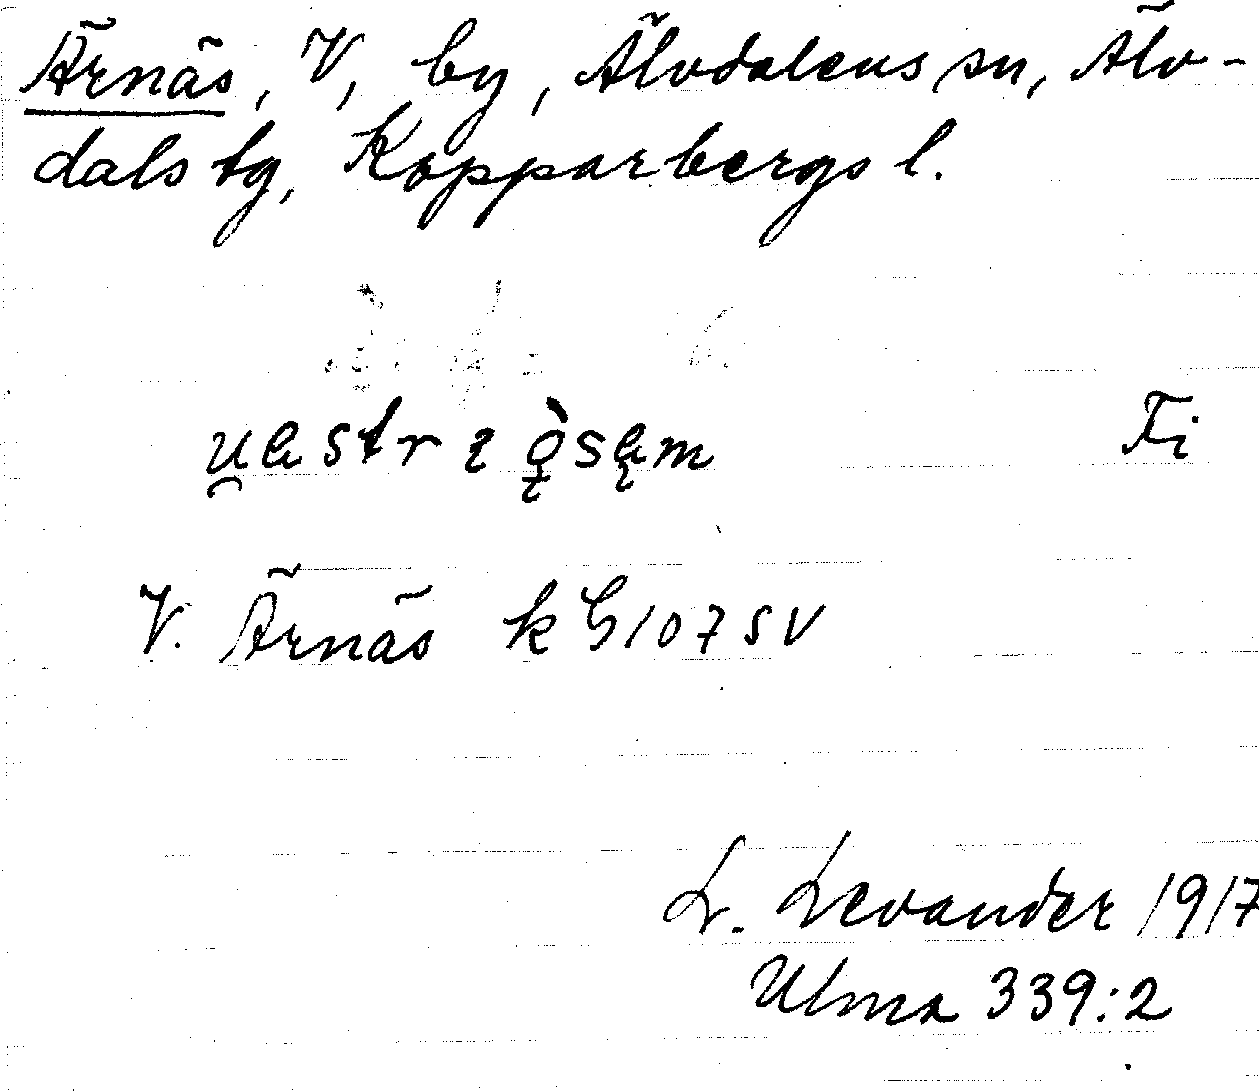 Ärnäs, V, by, Älvdalens sn, Älv-
dals tg, Kopparbergs l.
Fi
V. Ärnäs k G 107 SV
L. Levander 1917
Ulma 339:2